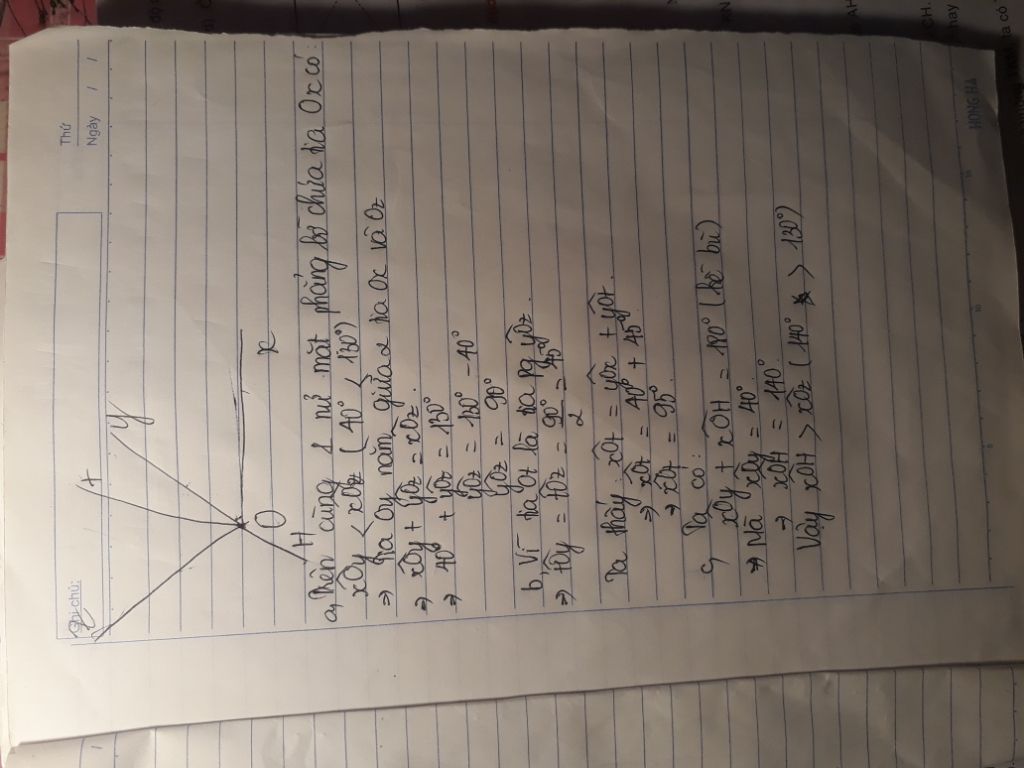 Thứ
Ngày / /
Ghi chú:
z
t
y
O
x
H
a, Trên cùng 1 nử mặt phẳng bờ chứa tia Ox có:
xÔy < xÔz (40° < 130°)
⇒ Tia Oy nằm giữa 2 tia Ox và Oz
⇒ xÔy + yÔz = xÔz
⇒ 40° + yÔz = 130°
yÔz = 130° - 40°
yÔz = 90°
b, Vì tia Ot là tia pg yÔz.
⇒ tÔy = tÔz = 90°/2 = 45°
Ta thấy: xÔt = yÔx + yÔt.
⇒ xÔt = 40° + 45°
⇒ xÔt = 95°
c, Ta có:
xÔy + xÔH = 180° (kề bù)
⇒ Mà xÔy = 40°
⇒ xÔH = 140°
Vậy xÔH > xÔz (140° > 130°)
HONG HA